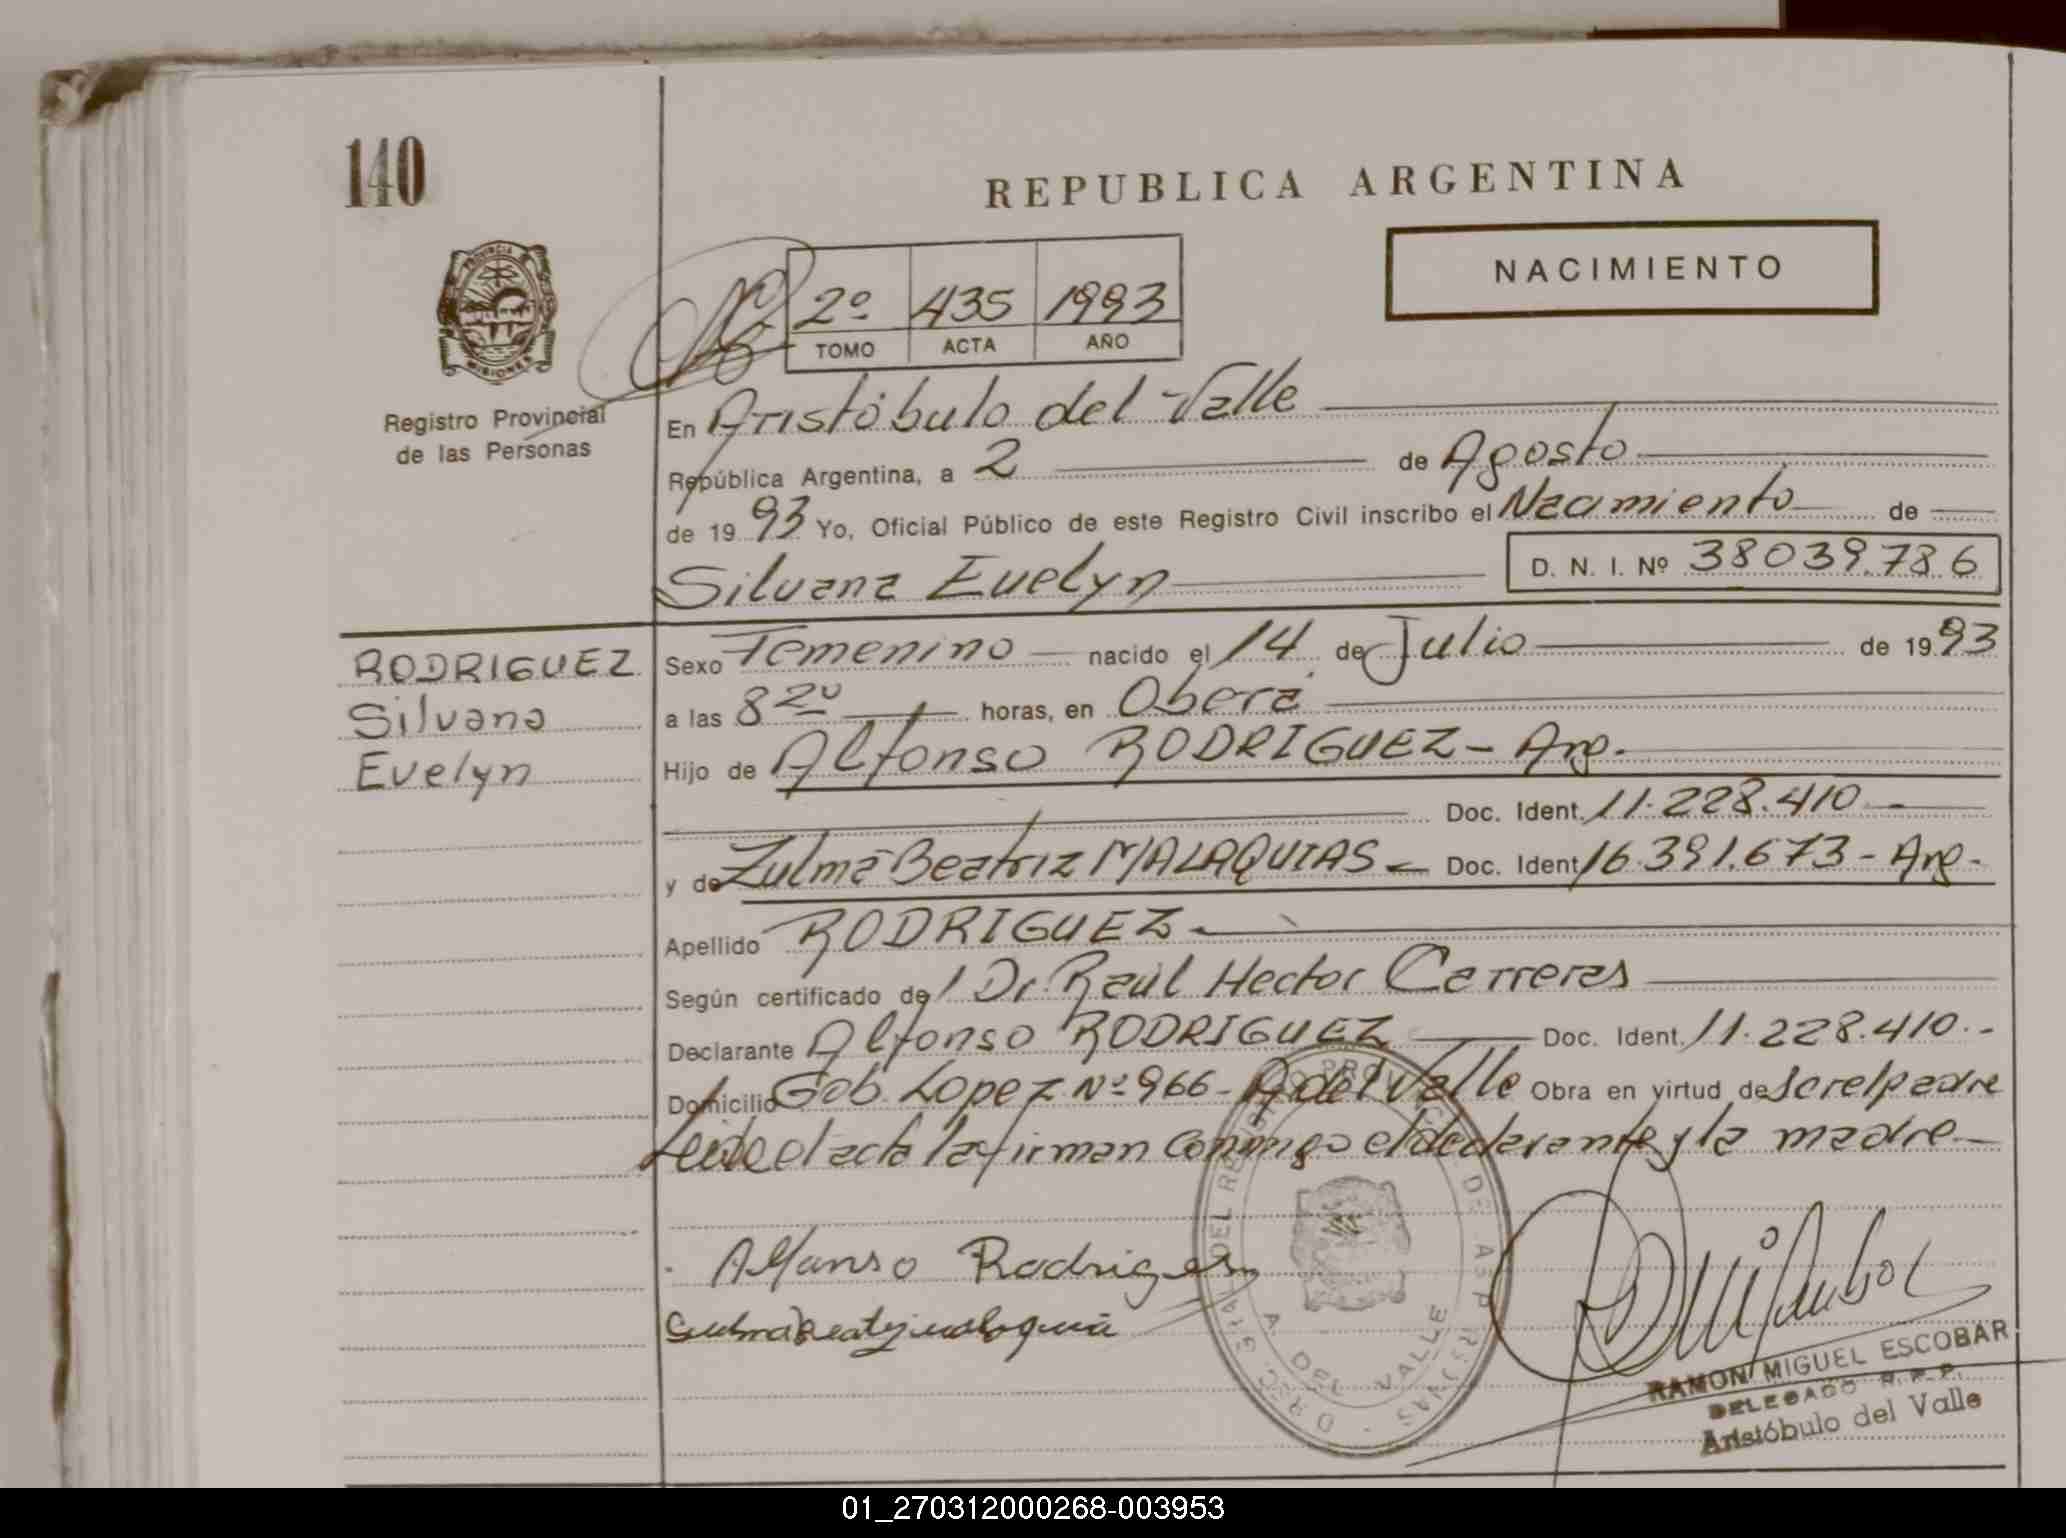 140
REPUBLICA ARGENTINA
NACIMIENTO
PROVINCIA
MISIONES
Registro Provincial
de las Personas
2º 435 1993
TOMO ACTA AÑO
En Aristóbulo del Valle
República Argentina, a 2 de Agosto
de 1993 Yo, Oficial Público de este Registro Civil inscribo el Nacimiento de
Silvana Evelyn D. N. I. Nº 38039.786
RODRIGUEZ
Silvana
Evelyn
Sexo Femenino nacido el 14 de Julio de 1993
a las 8 20 horas, en Oberá
Hijo de Alfonso RODRIGUEZ - Arg.
Doc. Ident. 11.228.410 -
y de Zulma Beatriz MALAQUIAS - Doc. Ident 16.391.673 - Arg -
Apellido RODRIGUEZ -
Según certificado del Dr. Raúl Hector Carreras
Declarante Alfonso RODRIGUEZ Doc. Ident. 11.228.410.-
Domicilio Gob. Lopez Nº 966 - A del Valle Obra en virtud de ser el padre
Leida el acta la firman conmigo el declarante y la madre -
Alfonso Rodrigez
A DEL VALLE
RAMON MIGUEL ESCOBAR
DELEGADO R. P. P.
Aristóbulo del Valle
01_270312000268-003953